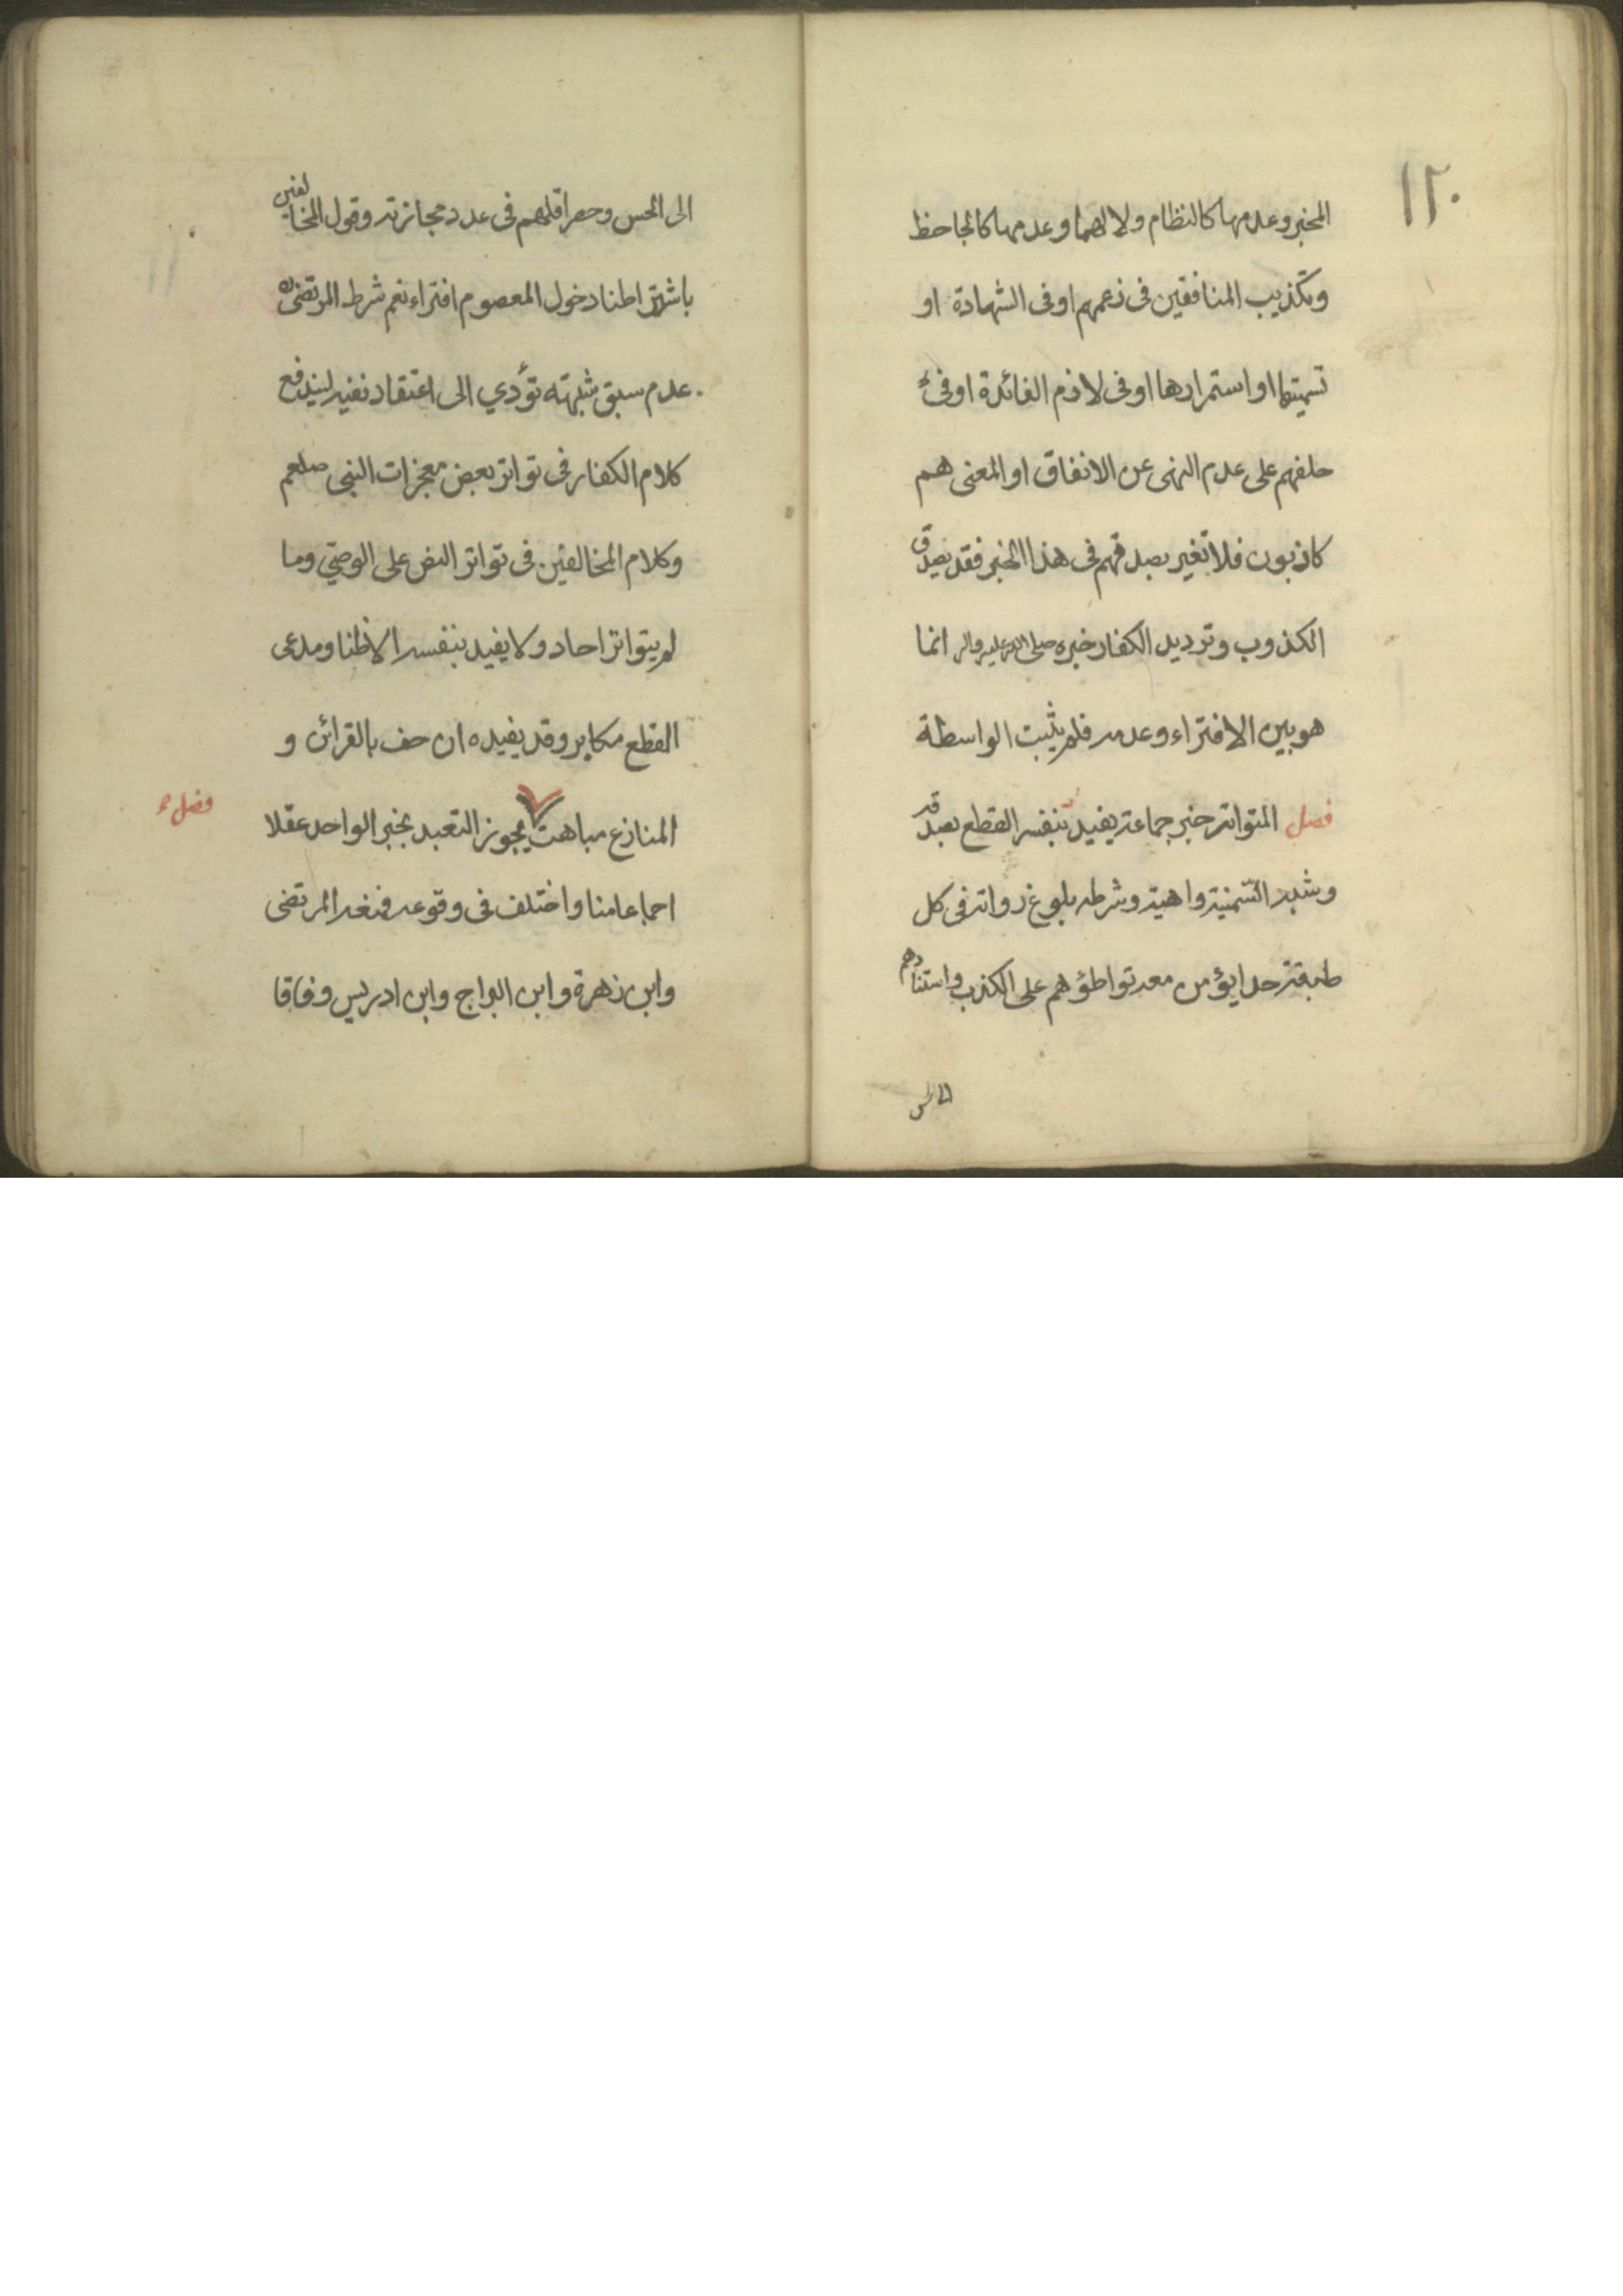 ١٢٠
المخبر وعدمها كالنظام ولا لهما وعدمها كالجاحظ
وتكذيب المنافقين فى زعمهم او فى الشهادة او
تسميتها او استمرارها او فى لازم الفائدة او فى
حلفهم على عدم النهى عن الانفاق او المعنى هم
كاذبون فلا تغير بصدقهم فى هذا الخبر فقد يصدق
الكذوب وترديد الكفار خبره صلى الله عليه واله انما
هو بين الافتراء وعدمه فلم يثبت الواسطة
فصل المتواتر خبر جماعة يفيد بنفسه القطع بصدقه
وشبه السّمنية واهية وشرطه بلوغ رواته فى كل
طبقة حدا يؤمن معه تواطؤهم على الكذب واستنادهم
الى الحس
الى الحس وحصر اقلهم فى عدد مجازفة وقول المخالفين
باشتراطنا دخول المعصوم افتراء نعم شرط المرتضى ره
عدم سبق شبهته تؤدي الى اعتقاد نفيه ليندفع
كلام الكفار فى تواتر بعض معجزات النبى صلعم
وكلام المخالفين فى تواتر النص على الوصيّ وما
لم يتواتر احاد ولا يفيد بنفسه الا ظنا ومدعى
القطع مكابر وقد يفيده ان حف بالقرائن و
المنازع مباهت يجوز التعبد بخبر الواحد عقلا
فصل
اجماعا منا واختلف فى وقوعه فمنعه المرتضى
وابن زهرة وابن البراج وابن ادريس وفاقا